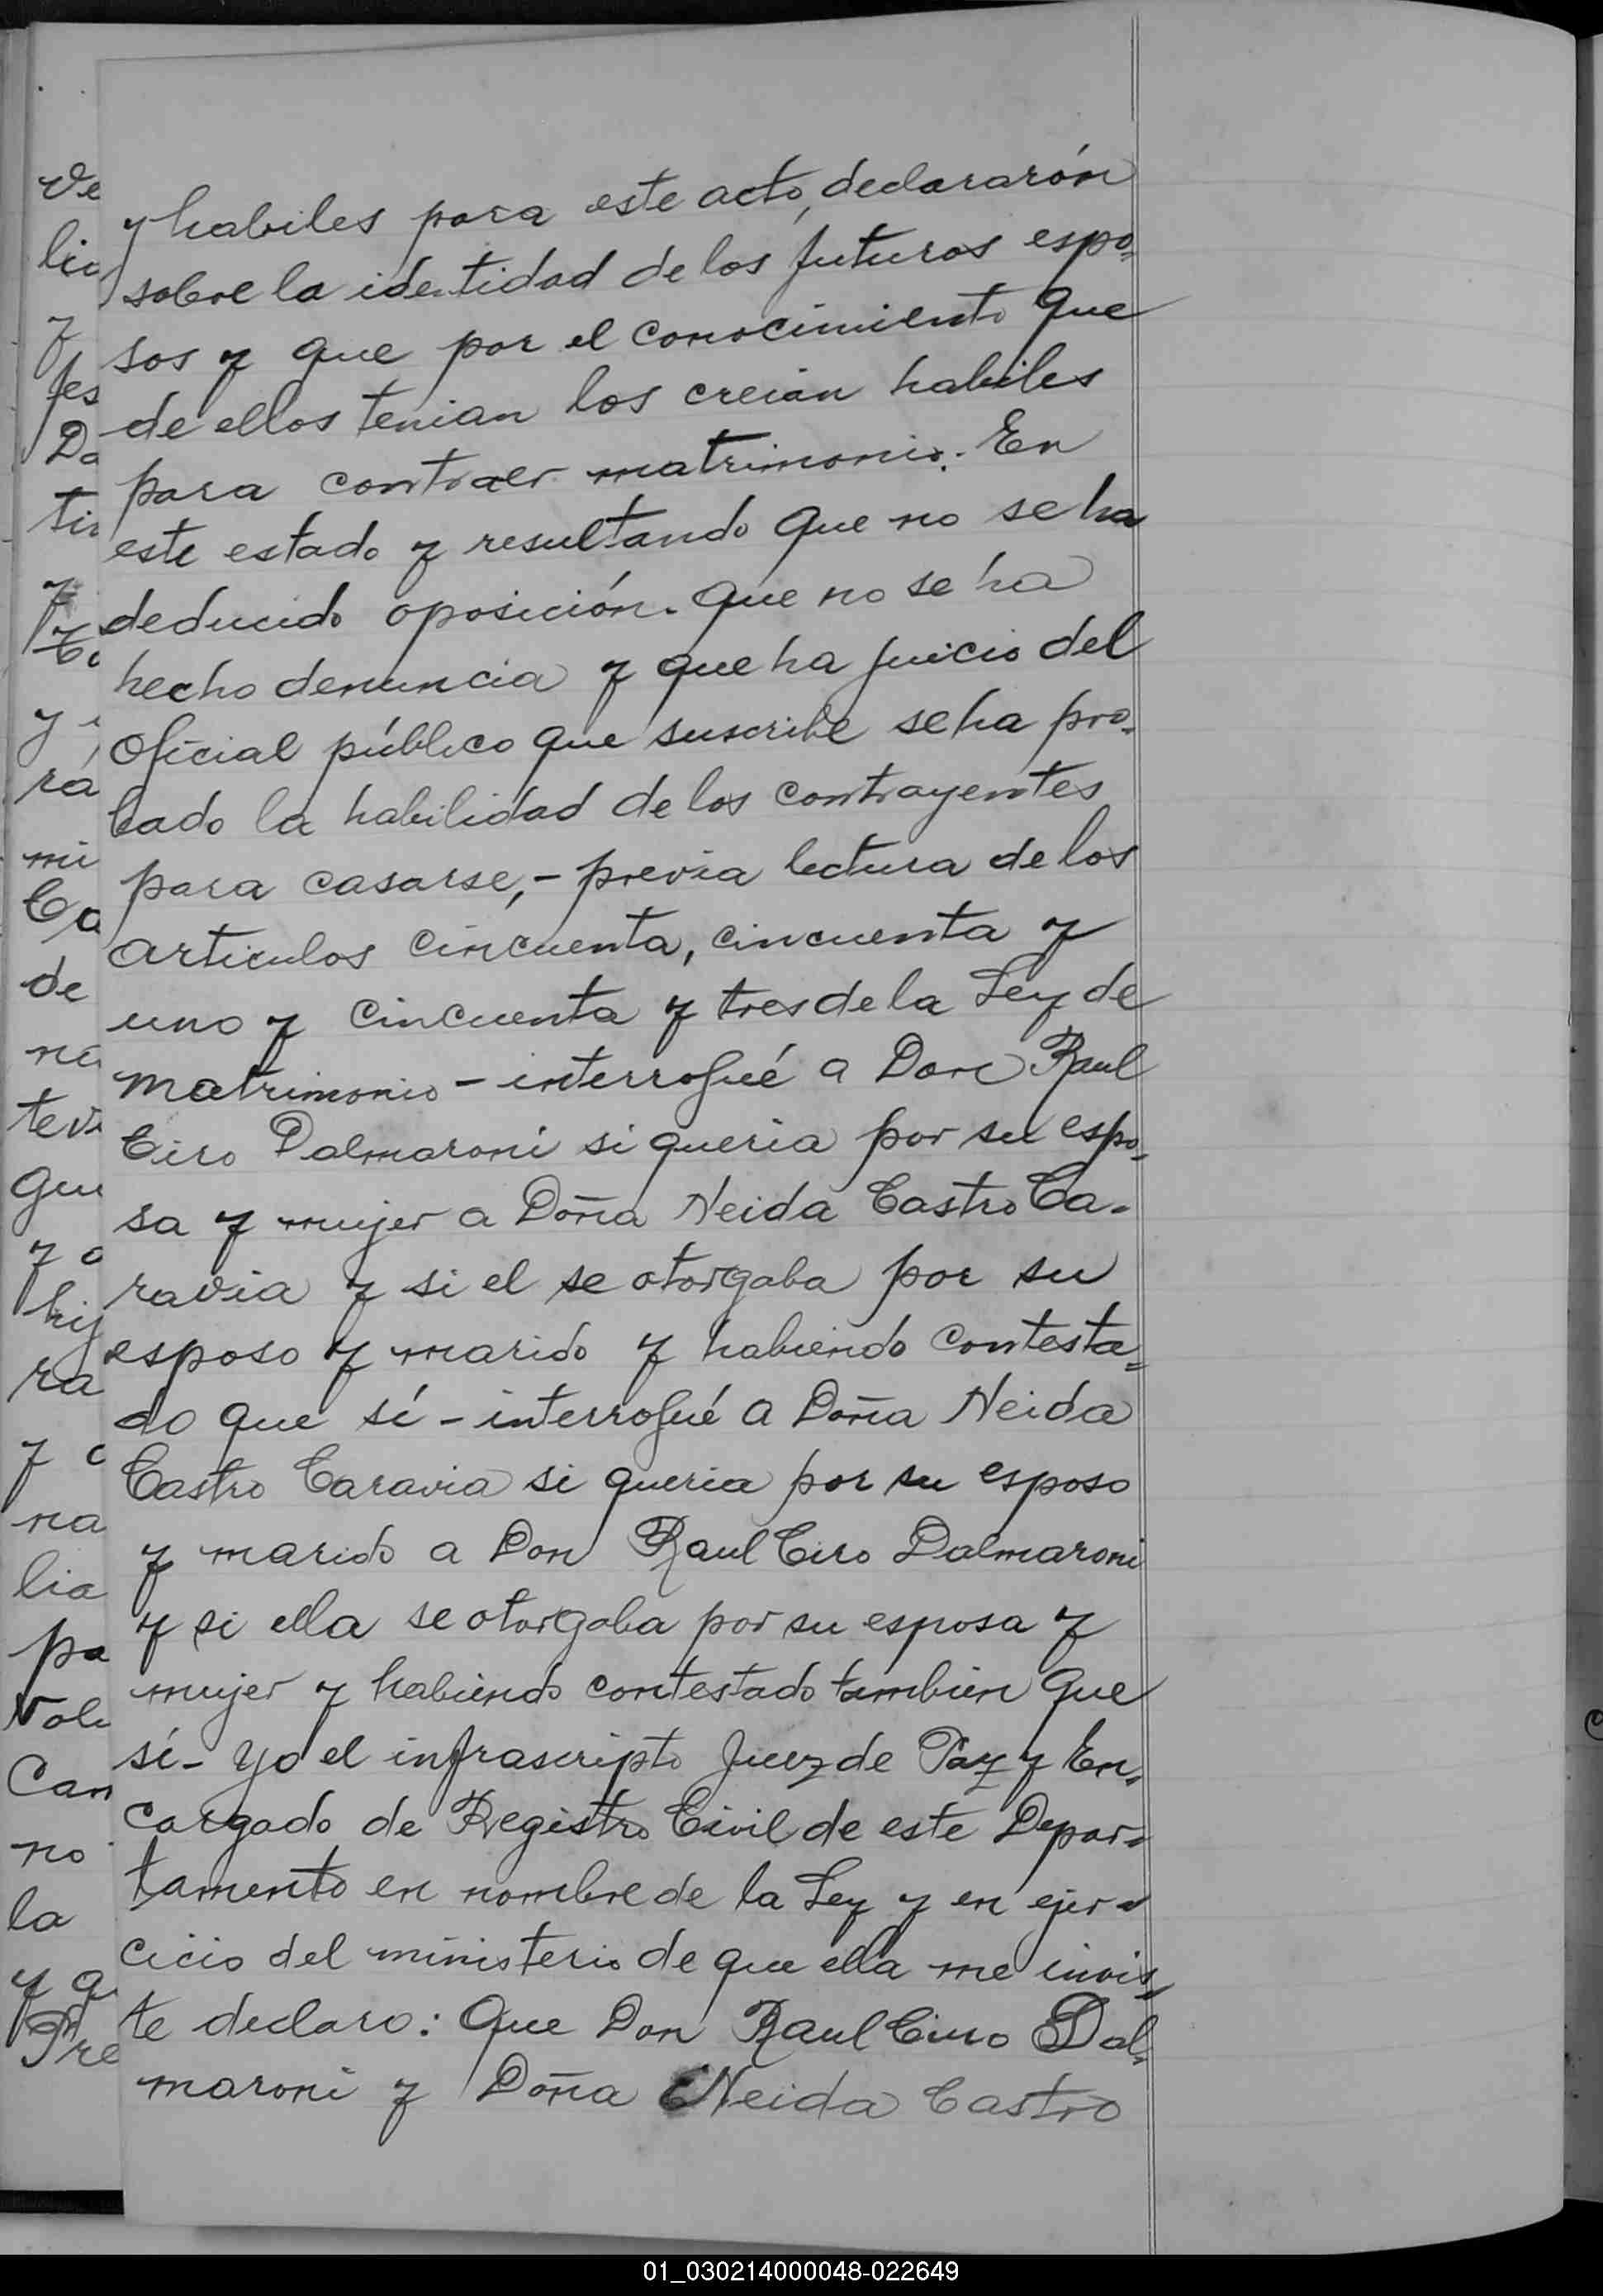 y habiles para este acto, declararón
sobre la identidad de los futuros espo-
sos y que por el conocimiento que
de ellos tenian los creian habiles
para contraer matrimonio. En
este estado y resultando que no se ha
deducido oposición. que no se ha
hecho denuncia y que ha juicio del
Oficial público que suscribe se ha pro-
bado la habilidad de los contrayentes
para casarse,- previa lectura de los
articulos cincuenta, cincuenta y
uno y cincuenta y tres de la Ley de
matrimonio - interrogué a Don Raul
Ciro Dalmaroni si queria por su espo-
sa y mujer a Doña Neida Castro Ca-
ravia y si el se otorgaba por su
esposo y marido y habiendo contesta-
do que sí - interrogué a Doña Neida
Castro Caravia si queria por su esposo
y marido a Don Raul Ciro Dalmaroni
y si ella se otorgaba por su esposa y
mujer y habiendo contestado tambien que
sí- Yo el infrascripto Juez de Paz y En-
cargado de Registro Civil de este Depar-
tamento en nombre de la Ley y en ejer-
cicio del ministerio de que ella me invis-
te declaro: Que Don Raul Ciro Dal-
maroni y Doña Neida Castro
01_030214000048-022649